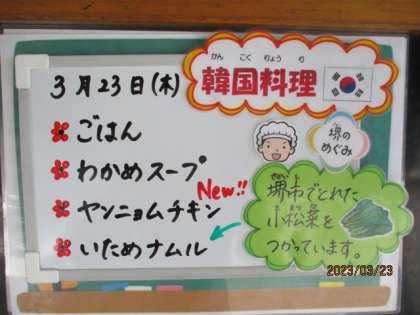 3月23日(木)
かんこくりょうり
韓国料理
ごはん
わかめスープ
New!!
ヤンニョムチキン
いためナムル
堺の
めぐみ
さかいし
堺市でとれた
小松菜を
つかっています。
2023/03/23